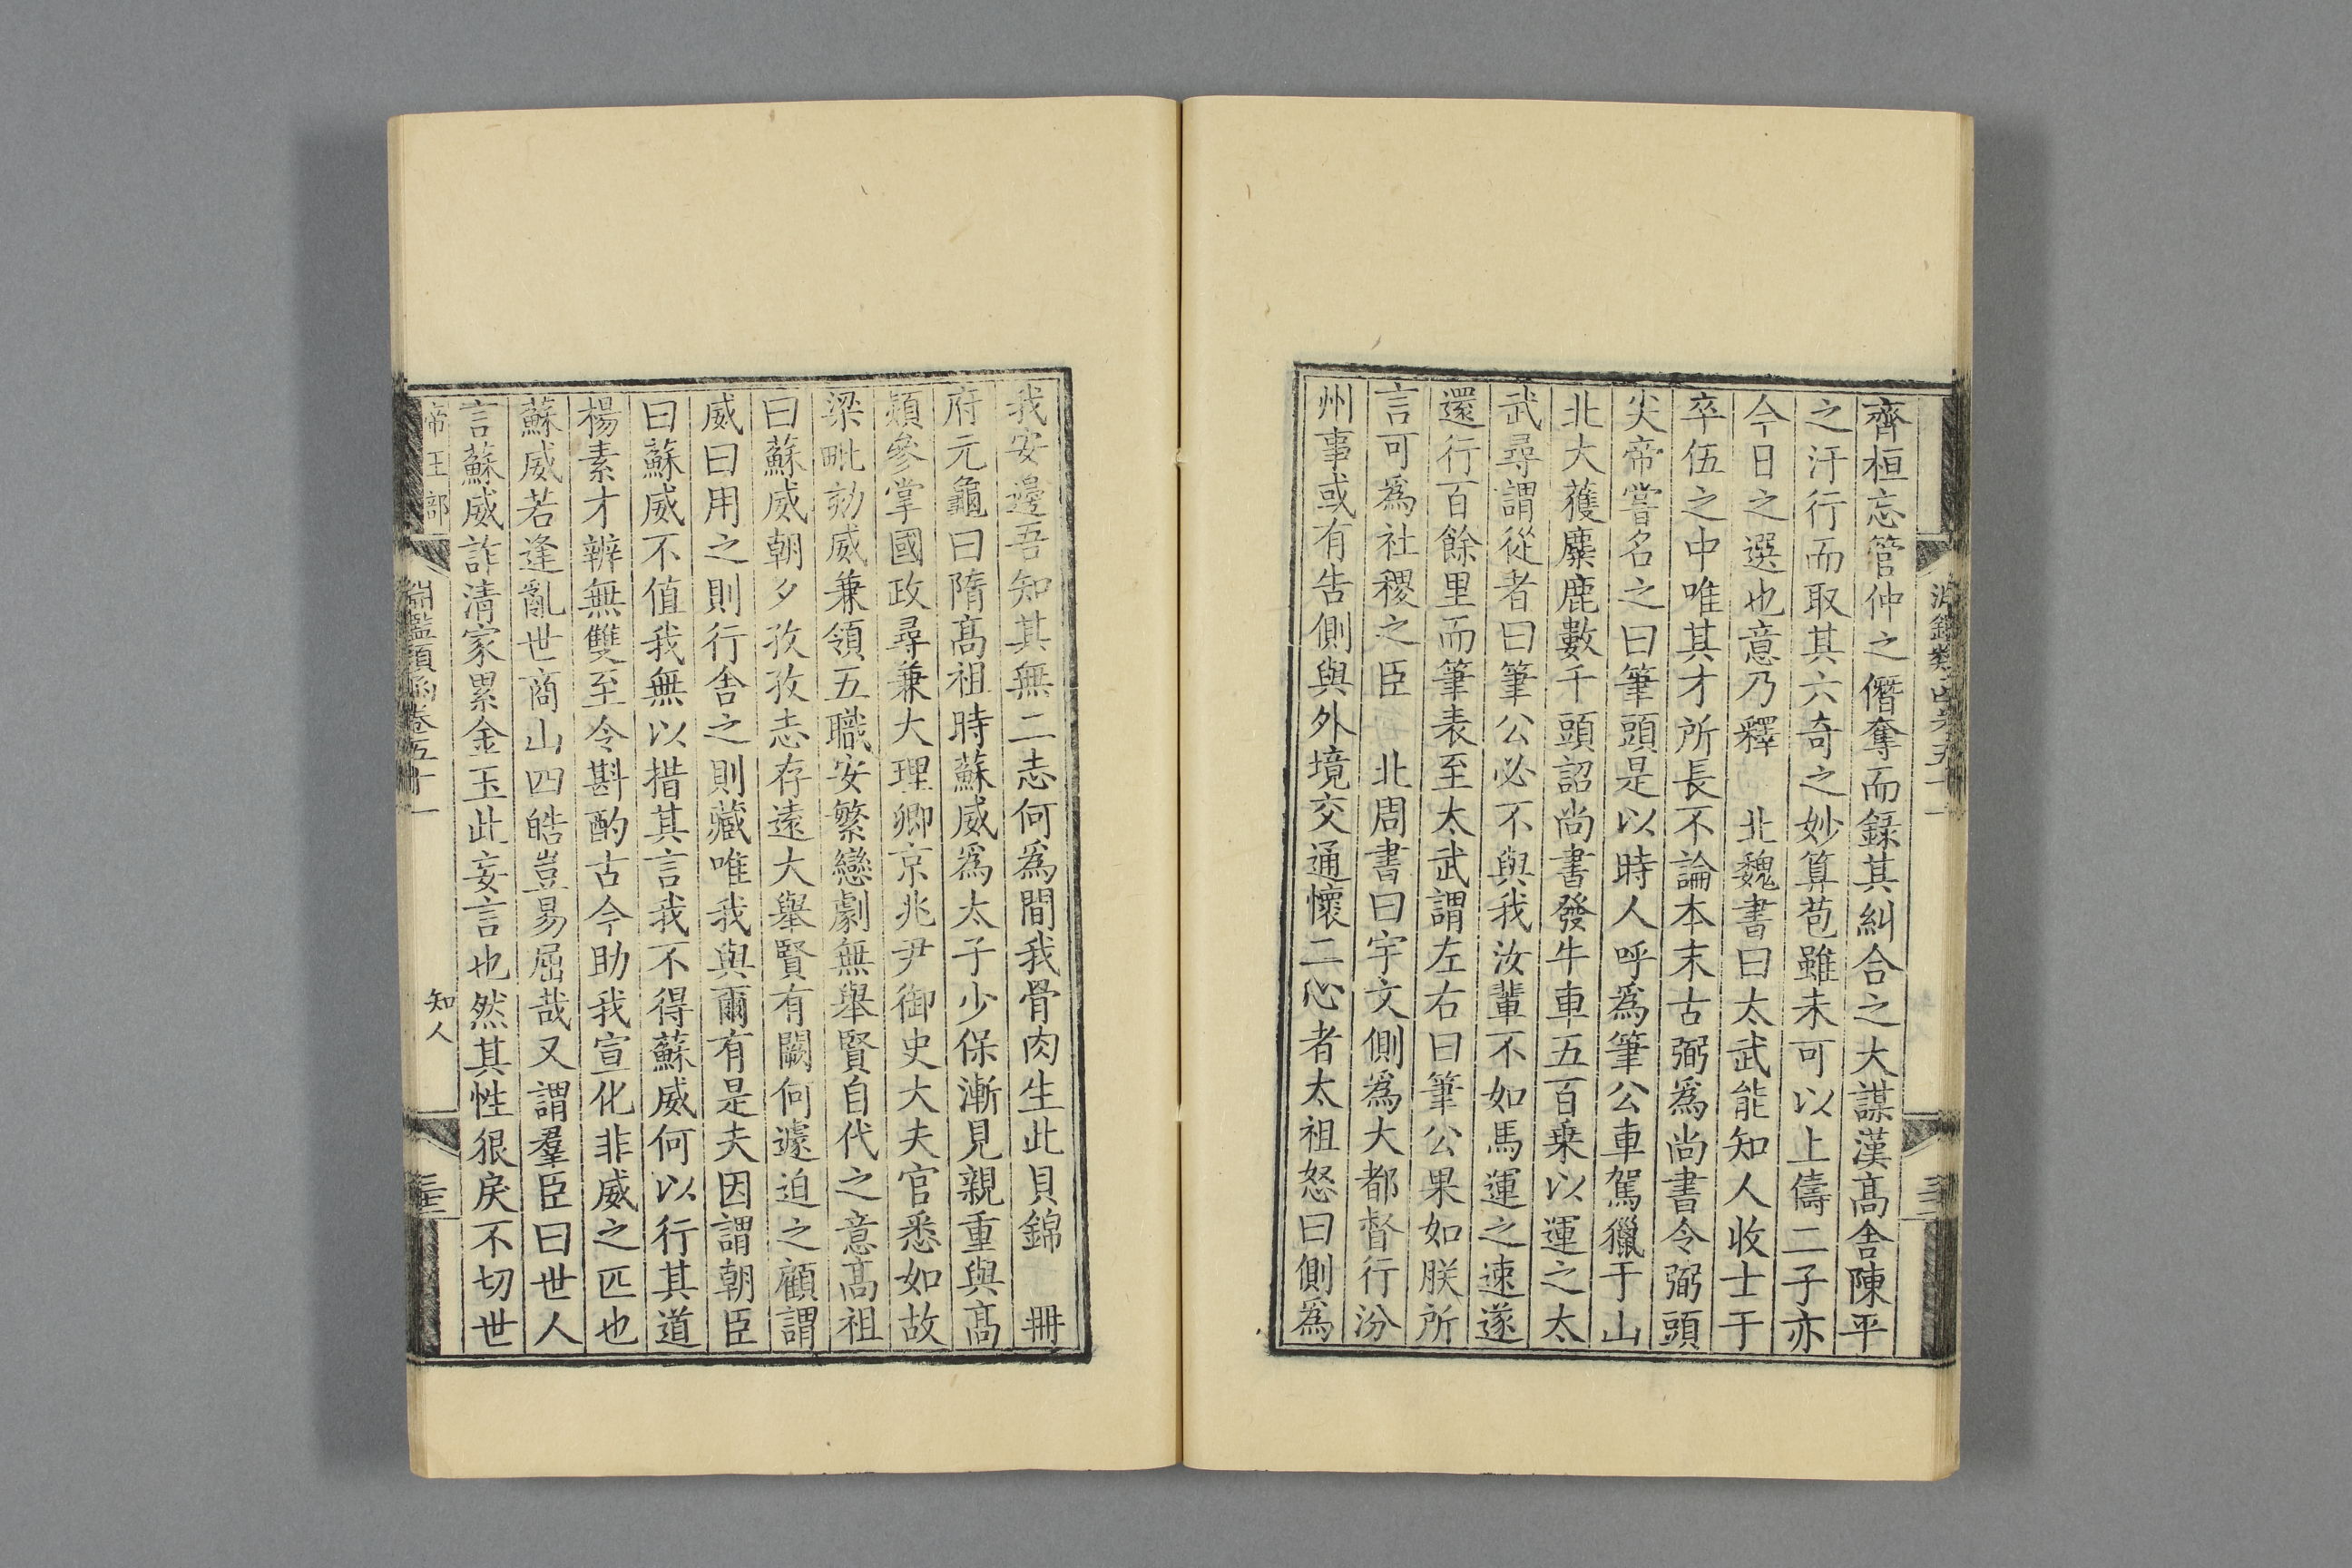 齊桓忘管仲之僭奪而錄其糾合之大謀漢髙舍陳平
之汙行而取其六奇之妙算苞雖未可以上儔二子亦
今日之選也意乃釋 北魏書曰太武能知人收士于
卒伍之中唯其才所長不論本末古弼爲尚書令弼頭
尖帝嘗名之曰筆頭是以時人呼爲筆公車駕獵于山
北大獲麋鹿數千頭詔尚書發牛車五百乗以運之太
武尋謂從者曰筆公必不與我汝輩不如馬運之速遂
還行百餘里而筆表至太武謂左右曰筆公果如朕所
言可爲社稷之臣 北周書曰宇文側爲大都督行汾
州事或有告側與外境交通懷二心者太祖怒曰側爲
我安邊吾知其無二志何爲間我骨肉生此貝錦 冊
府元龜曰隋髙祖時蘇威爲太子少保漸見親重與髙
熲參掌國政尋兼大理卿京兆尹御史大夫官悉如故
梁毗劾威兼領五職安繁戀劇無舉賢自代之意髙祖
曰蘇威朝夕孜孜志存遠大舉賢有闕何遽迫之顧謂
威曰用之則行舍之則藏唯我與爾有是夫因謂朝臣
曰蘇威不值我無以措其言我不得蘇威何以行其道
楊素才辨無雙至令斟酌古今助我宣化非威之匹也
蘇威若逢亂世商山四皓豈易屈哉又謂羣臣曰世人
言蘇威詐清家累金玉此妄言也然其性狠戾不切世
帝王部 淵鑑類函卷五十一 知人